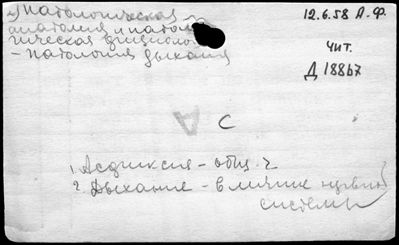 2) Патологическая
анатомия и патоло
гическая физиолог
- патология дыхания
12.6.58 А.Ф.
Чит.
Д 18867
А
С
1. Асфиксия - общ. ч.
2. Дыхание - влияние нервной
системы